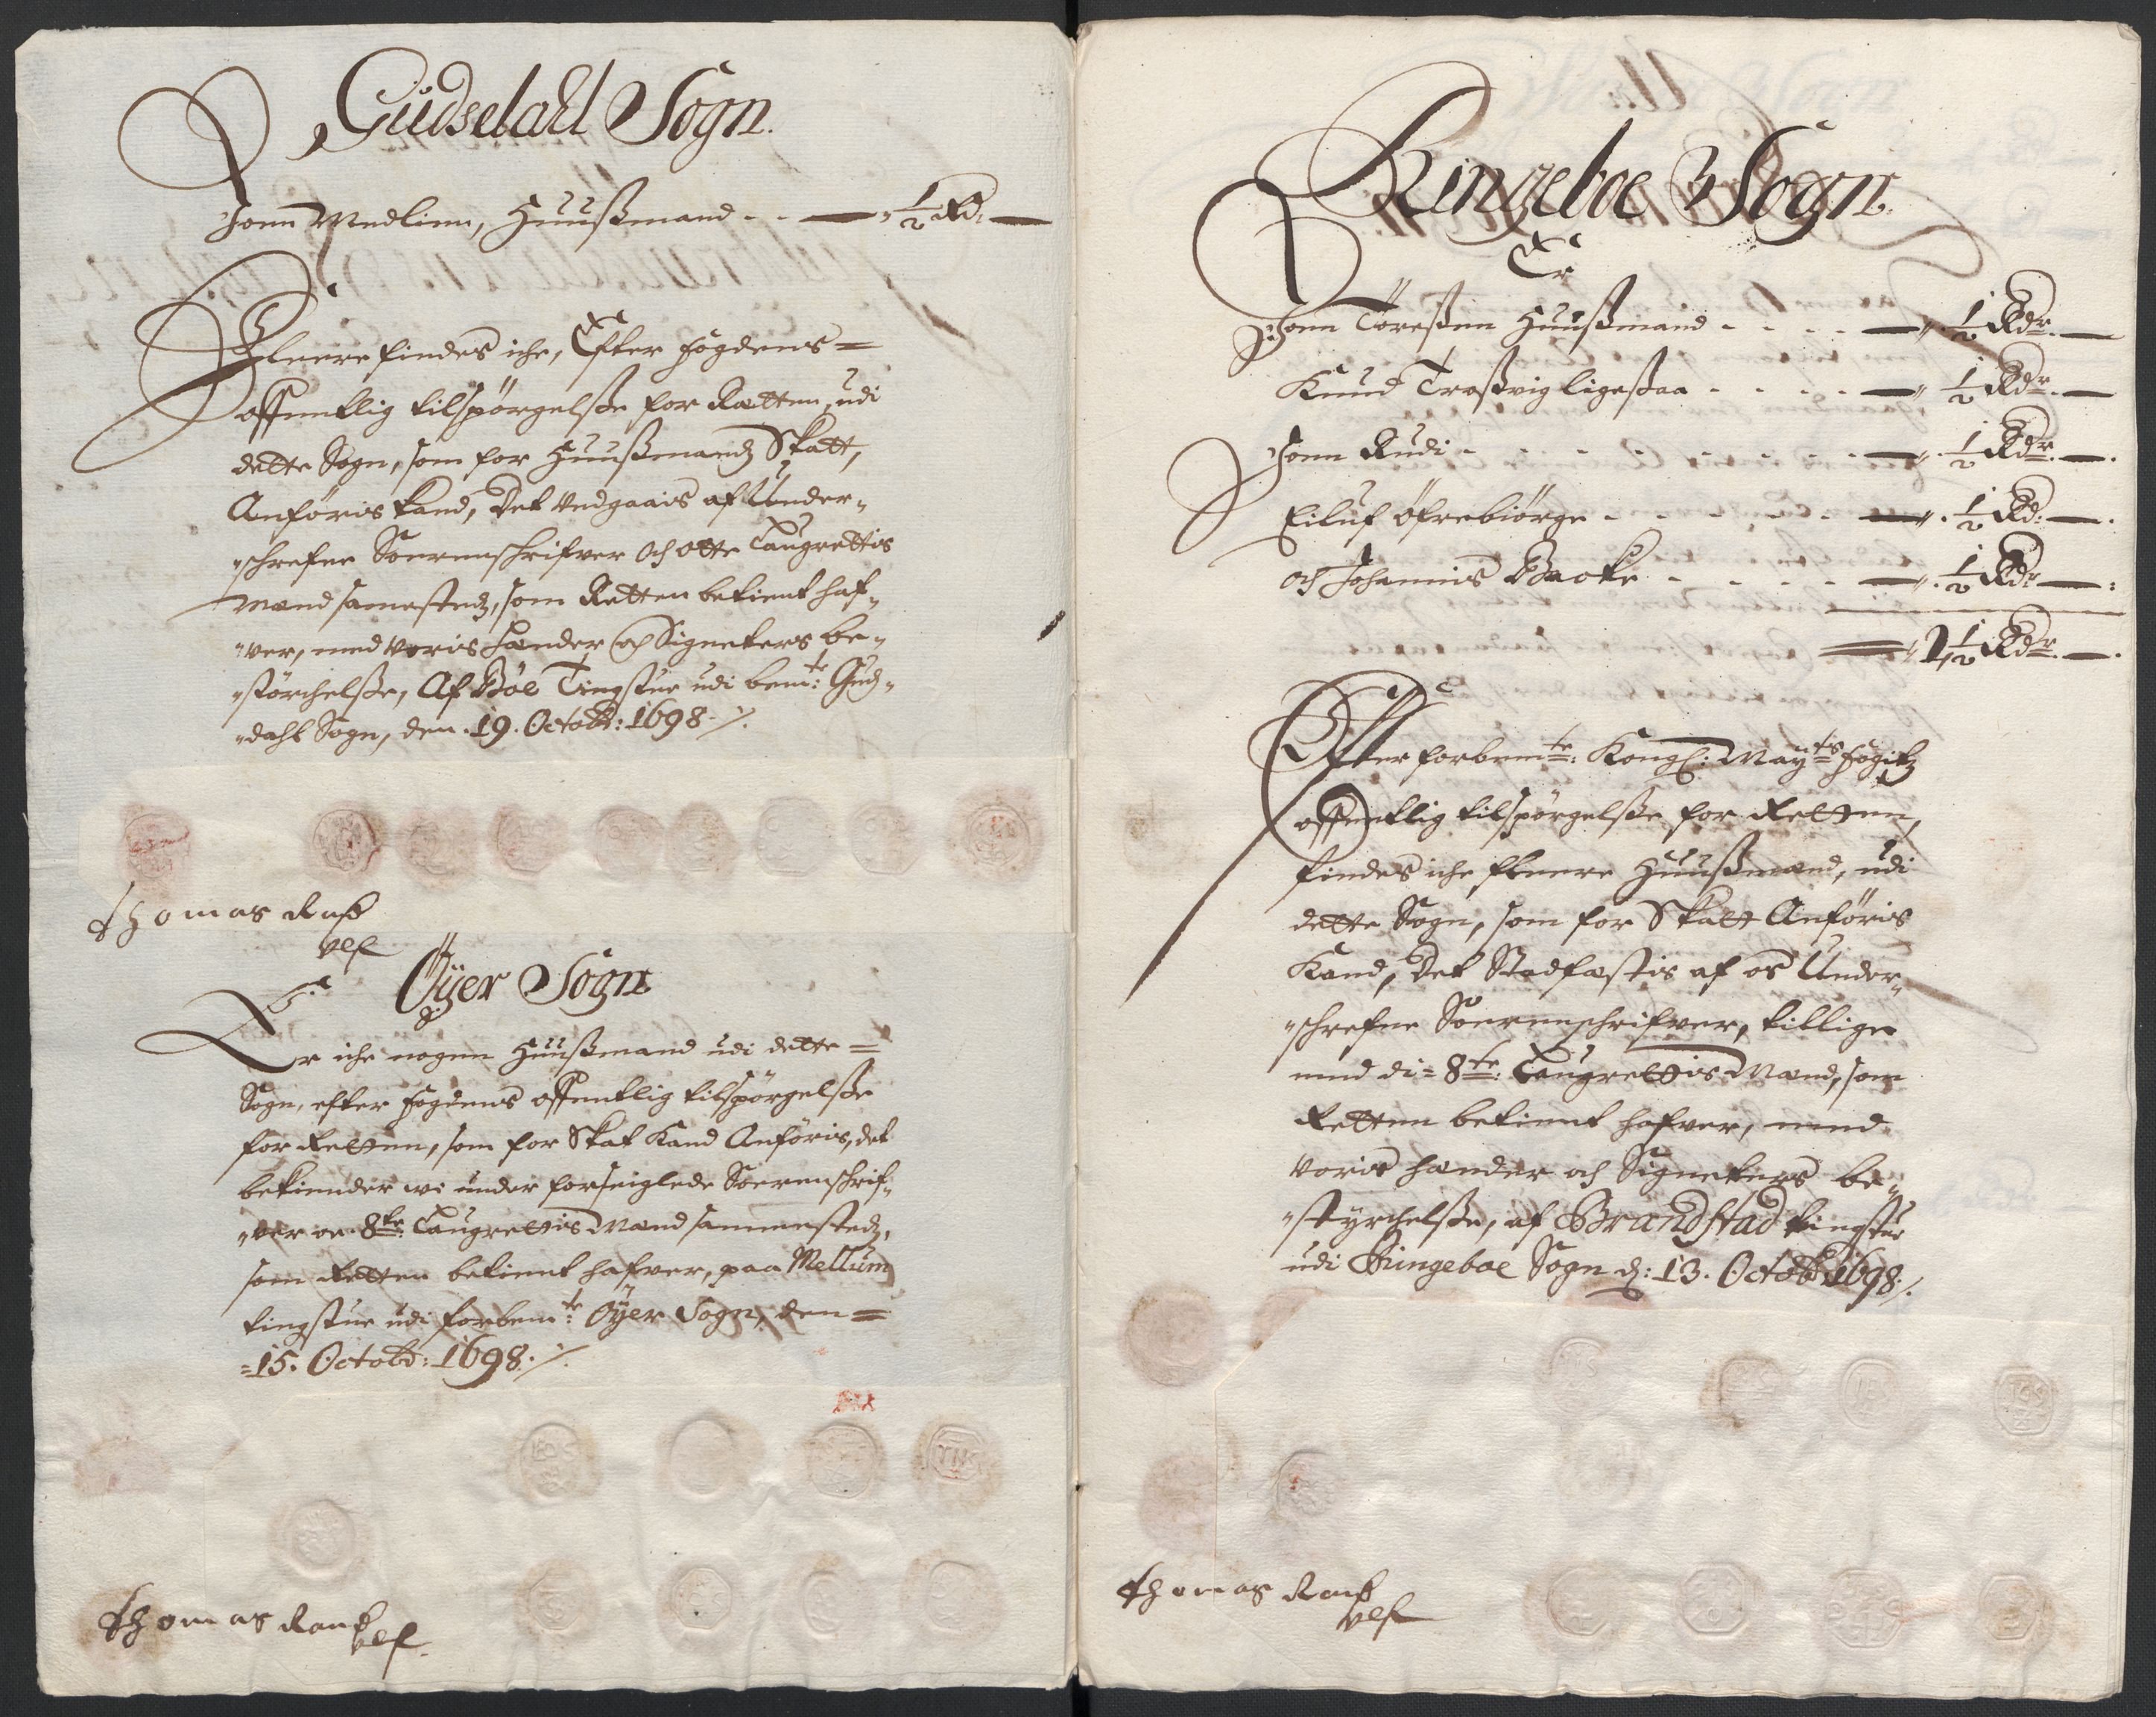 Gudsdahl Sogn.
Joen Medlien, Huußmand - - — " ½ Rd: —
Fleere findes iche, Efter fogdens =
offentlig tilspörgelße for Retten, udi
dette Sogn, som for Huußmandz Skatt,
Anföris kand, Det vedgaais af Under-
"schrefne Sorenschrifver Och otte Laugrettis
Mænd samestedz, som Retten betient haf-
"ver, med voris Hænder och Signeters be-
"störchelße, Af Böe Tingstue udi bemte: Gudz-
"dahl Sogn, den. 19. Octobr: 1698 ./.
Thomas Rasß
Öÿer Sogn
Er iche nogen Huußmand udi dette =
Sogn, efter fogdens offentlig tilspörgelße
for Retten, som for Skat Kand Anföris, det
bekiender wi under forseiglede Sorenschrif-
"ver oc 8te: Laugrettis Mænd sammestedz,
som Retten betient hafver, paa Mellum
tingstue udi forbemte: Öÿer Sogn, den =
=15. Octobr: 1698 ./.
Thomas Ransß
Ringeboe Sogn
Er
Joen Toreßen Huußmand - - - - — " ½ Rdr. —
Knud Troßvig ligeßaa - - - - — " ½ Rdr. —
Joen Rudi - - - - - - - — " ½ Rdr. —
Eiluf Öfrebiörge - - - - - — " ½ Rd: —
och Johannis Backe - - - - — " ½ Rdr —
= " 2½ Rdr. —
Efter forbemte: Kongl: Mayts fogitz
offentlig tilspörgelße for Retten,
findes iche fleere Huußmænd, udi
dette Sogn, som for Skatt Anföris
Kand, Det Stadfæstis af os Under-
"schrefne Sorenschrifver, tillige
med di = 8te: Laugrettis Mænd, som
Retten betient hafver, med
voris hænder och Signeters be-
"styrchelße, af Brandstad tingstue
udi Ringeboe Sogn dz: 13. Octobr: 1698 ./.
Thomas Ransß